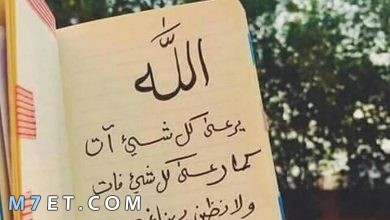 اللّٰه
يرعى كل شيئ آت
كما رعى كل شيئ فات
ولا نظن
M7ET.COM